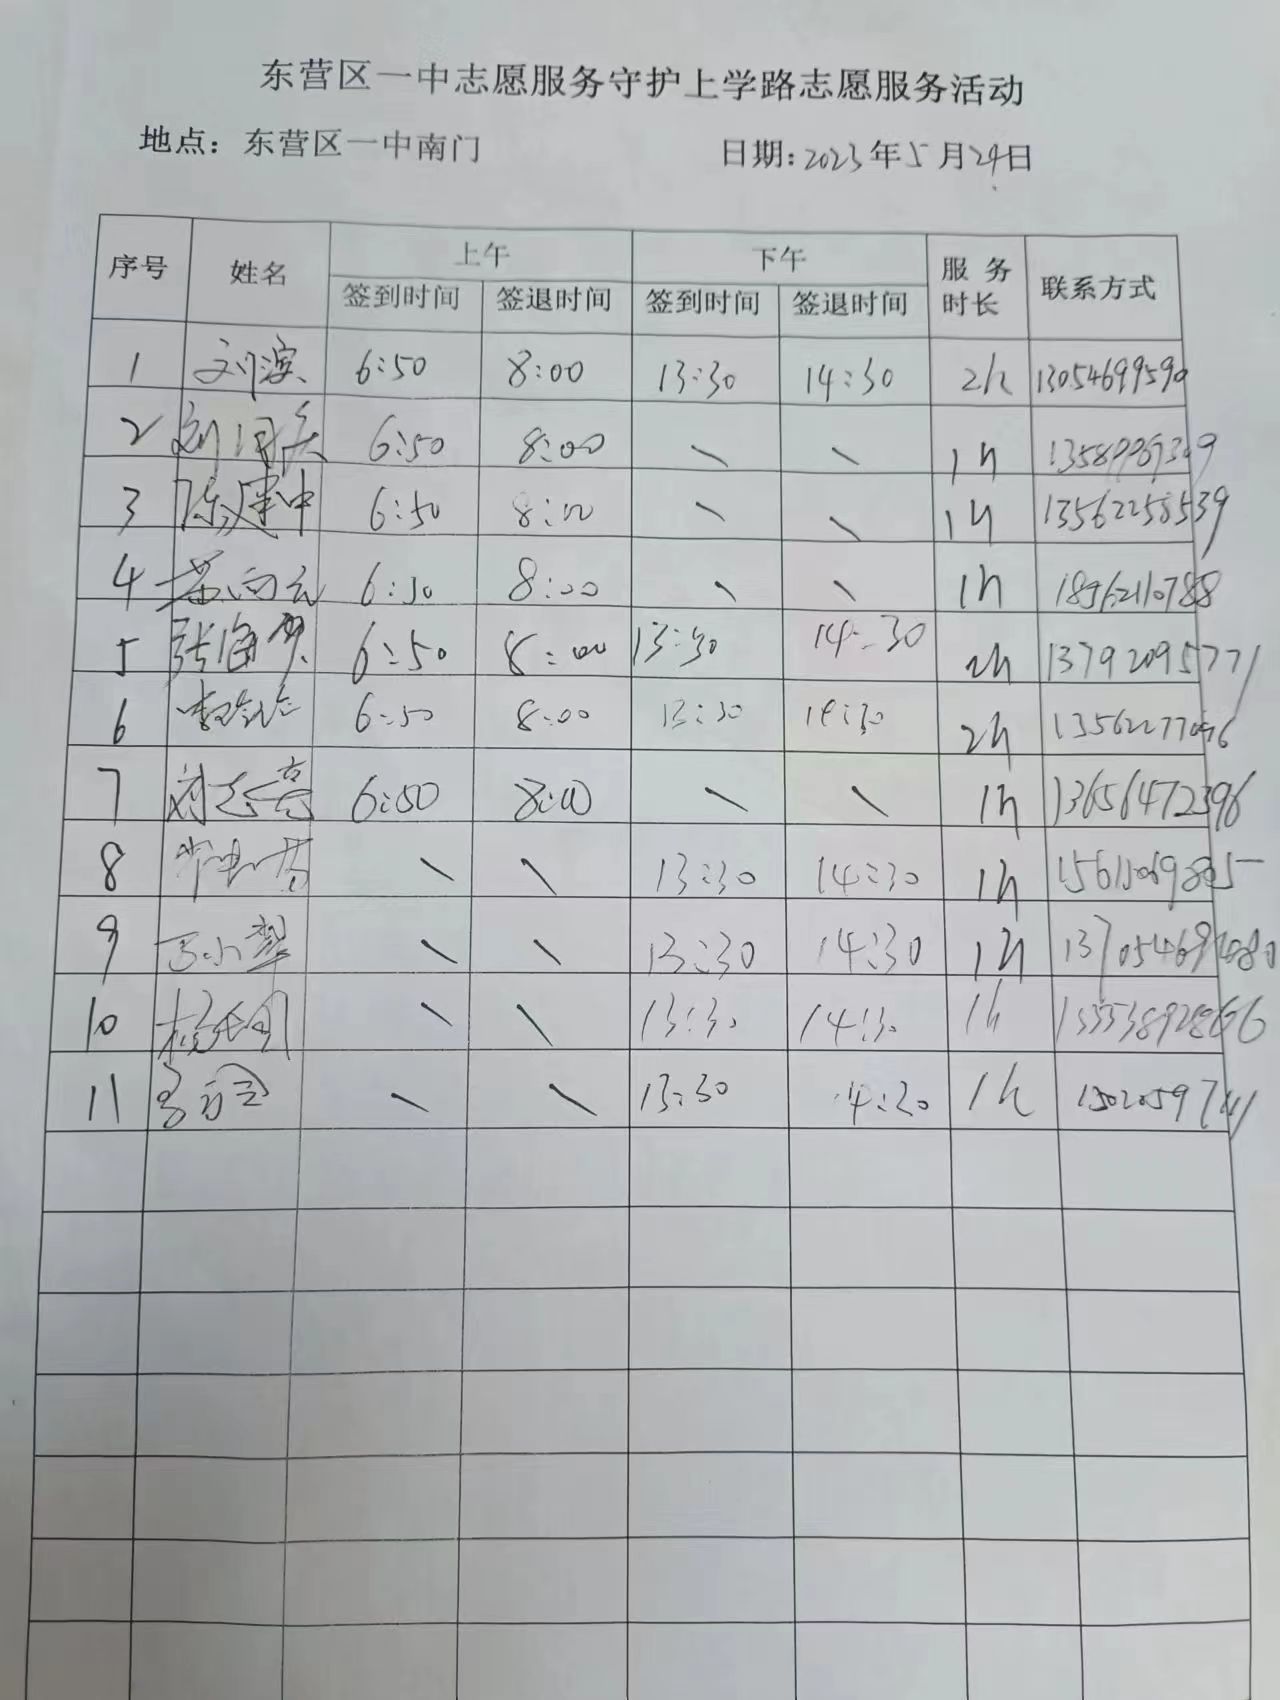 东营区一中志愿服务守护上学路志愿服务活动
地点：东营区一中南门 日期：2023年5月24日
序号 姓名 上午 下午 服务时长 联系方式
签到时间 签退时间 签到时间 签退时间
1 刘滨 6:50 8:00 13:30 14:30 2h 13054699590
2 6:50 8:00 \ \ 1h
3 陈建中 6:50 8:00 \ \ 1h 13562258539
4 苏向云 6:30 8:00 \ \ 1h
5 6:50 8:00 13:30 14:30 2h 13792095771
6 6:50 8:00 13:30 14:30 2h
7 刘志亮 6:50 8:00 \ \ 1h 13656472396
8 \ \ 13:30 14:30 1h
9 \ \ 13:30 14:30 1h
10 \ \ 13:30 14:30 1h
11 \ \ 13:30 14:30 1h